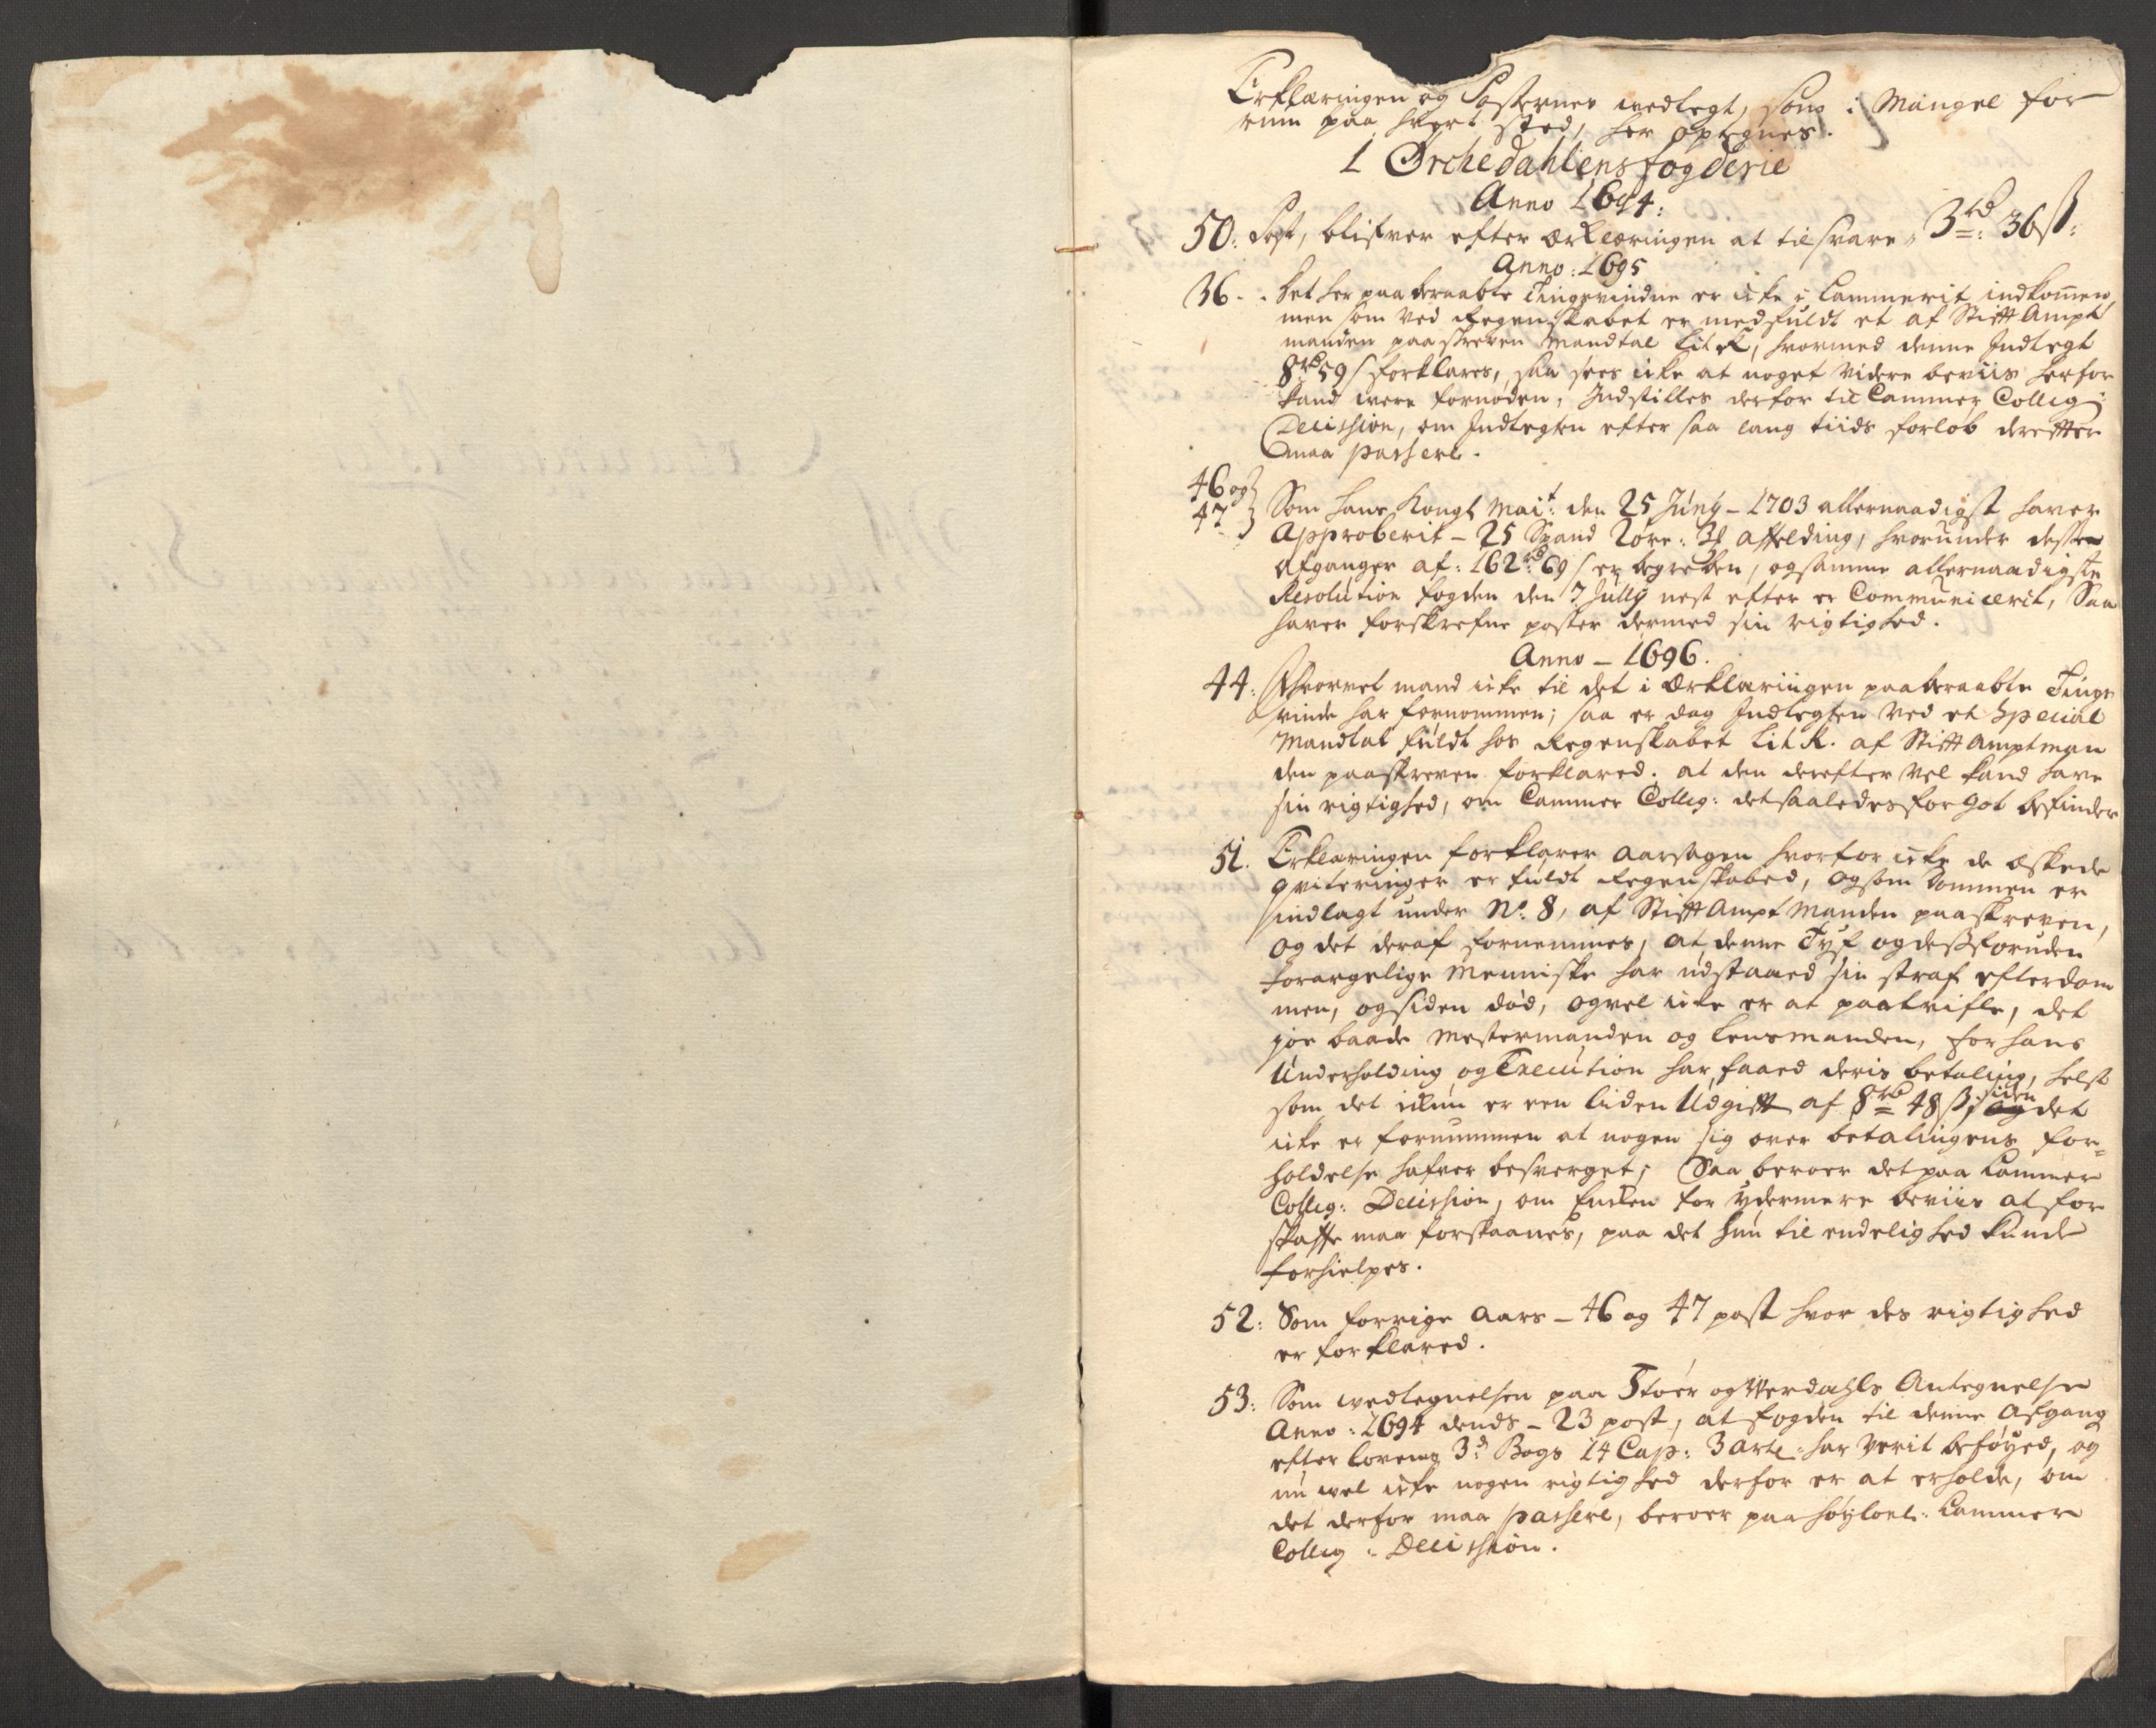 Erklæringen og Posternes vedtegt, som i Mangel for
rum paa hvert sted, her optegnes.
I Orchedahlens fogderie
Anno 1694:
50: Post, blifver efter ærklæringen at tilsvare, 3 rd: 36 ß:
Anno: 1695
36. Det her paaberaabte Tingsvindne er icke i Cammerit indkommen,
men som ved Regenskabet er medfuldt et af Stifft Ampt
manden paaskreven Mandtal Lit R, hvormed denne Indtegt
8 rd 59 s forklares, saa sees icke at noget videre beviis herfor
kand were fornøden, Indstilles derfor til Cammer Colleg:
Decission, om Indtegten efter saa lang tiids forløb derefter
maa passere.
46 og
47 Som hans Kongl Mait: den 25 Juny 1703 allernaadigst haver
Approberit 25 Spand 2 øre: affelding, hvorunder desse
Afganger af: 162 rd 69 s er begreben, og samme allernaadigste
Resolution fogden den 7 Jully nest efter er Communicerit, Saa
haver forskrefne poster dermed sin rigtighed.
Anno 1696.
44: Hvorvel mand icke til det i Ærklæriingen paaberaabte Tings
vinde har fornommen; saa er dog Indtegten ved et Special
Mandtal fuldt hos Regenskabet Lit R. af Stifft Amptman
den paaskreven forklared. at den derefter vel kand have
sin rigtighed, om Cammer Colleg: det saaledes for got befinder
51. Erklæringen forklarer aarsagen hvorfor icke de æskede
qviteringer er fuldt Regenskabed, og som Dommen er
indlagt under No: 8, af Stifft Ampt Manden paaskreven,
og det deraf fornemmes, at denne Tyf og dessforuden
forargelige Menniske har udstaaed sin straf efter dom
men, og siden død, og vel icke er at paatvifle, det
joe baade Mestermanden og Lensmanden, for hans
Underholding og Execution har faaed deris betaling, helst
som det ickun er een liden Udgifft af 8 rd 48 ß, siden det
icke er fornummen at nogen sig over betalingens for¬
holdelse hafver besverget; Saa beroer det paa Cammer
Colleg: Decission, om Encken for ydermere beviis at for
skaffe maa forskaanes, paa det hun til endelighed kunde
forhielpes.
52: Som forrige Aars 46 og 47 post hvor des rigtighed
er forklared.
53: Som vedtegnelsen paa Støer og Werdahls Antegnelse
Anno: 1694 dends 23 post, at fogden til denne Afgang
efter Lovens 3d Bogs 14 Cap: 3 Artl: har verit beføyed, og
nu vel icke nogen rigtighed derfor er at erholde, om
det derfor maa passere, beroer paa høyloul: Cammer
Colleg: Decission.